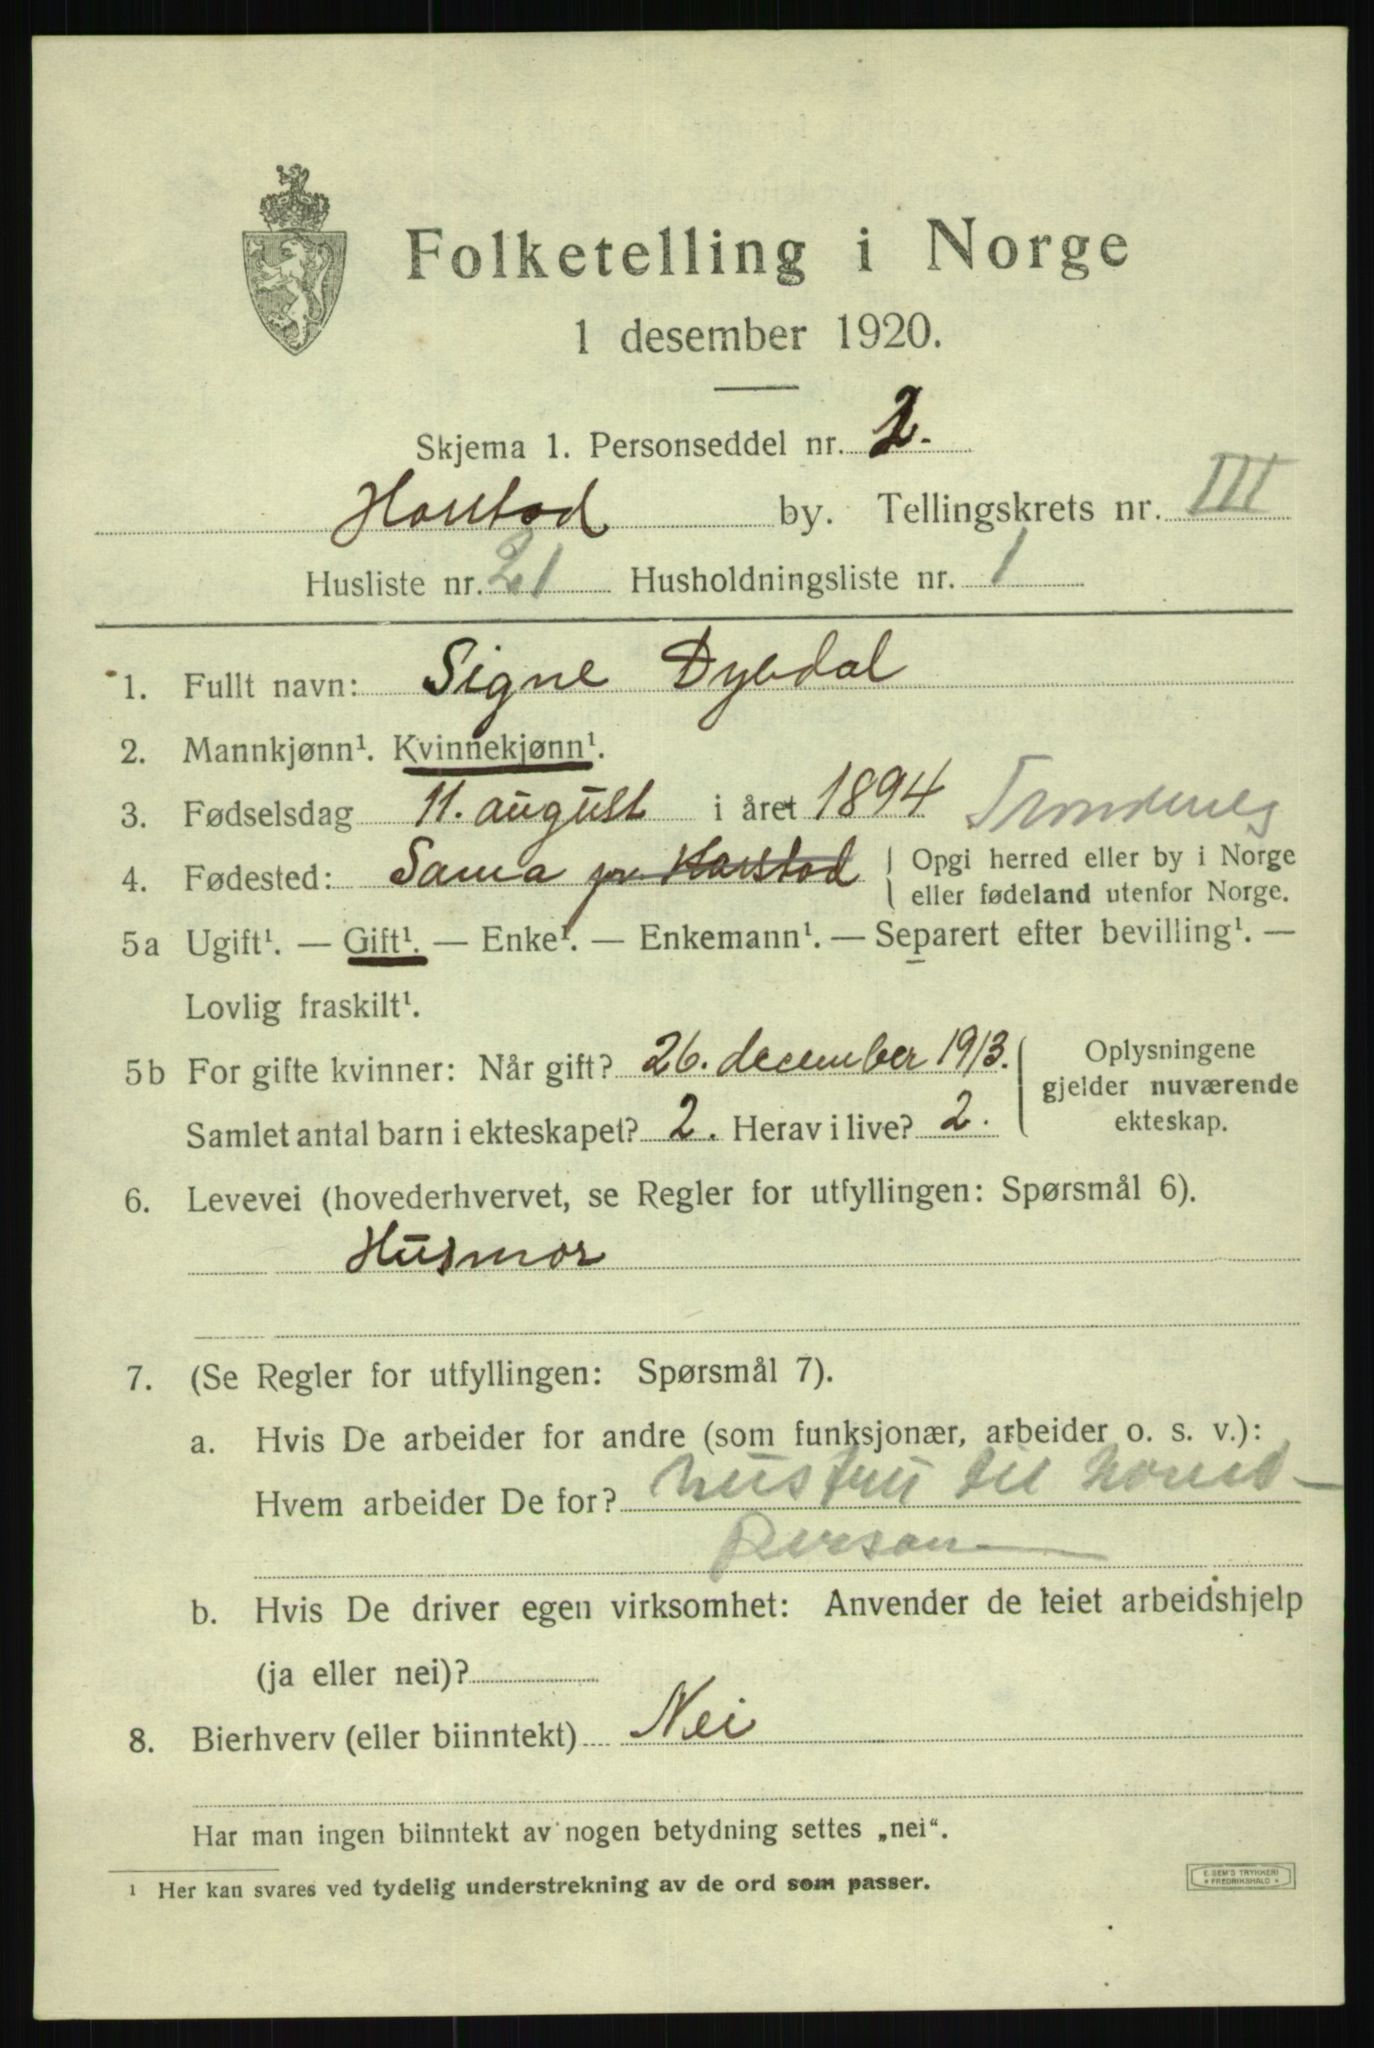 Folketelling i Norge
1 desember 1920.
Skjema 1. Personseddel nr. 2.
Harstad by. Tellingskrets nr. III
Husliste nr. 21 Husholdningsliste nr. 1
1. Fullt navn: Signe Dybdal
2. Mannkjønn¹. Kvinnekjønn¹.
3. Fødselsdag 11. august i året 1894 Trondenes
4. Fødested: Sama pr Harstad Opgi herred eller by i Norge
eller fødeland utenfor Norge.
5a Ugift¹. — Gift¹. — Enke¹. — Enkemann¹. — Separert efter bevilling¹. —
Lovlig fraskilt¹.
5b For gifte kvinner: Når gift? 26. december 1913. Oplysningene
gjelder nuværende
Samlet antal barn i ekteskapet? 2. Herav i live? 2. ekteskap.
6. Levevei (hovederhvervet, se Regler for utfyllingen: Spørsmål 6).
Husmor
7. (Se Regler for utfyllingen: Spørsmål 7).
a. Hvis De arbeider for andre (som funksjonær, arbeider o. s. v.):
Hvem arbeider De for? hustru til hoved-
person
b. Hvis De driver egen virksomhet: Anvender de leiet arbeidshjelp
(ja eller nei)?
8. Bierhverv (eller biinntekt) Nei
Har man ingen biinntekt av nogen betydning settes „nei“.
¹ Her kan svares ved tydelig understrekning av de ord som passer.
E. SEM'S TRYKKERI
* FREDRIKSHALD *